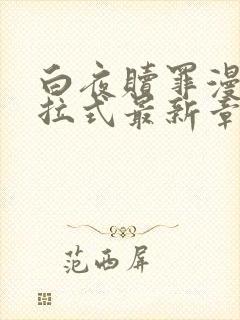 白夜赎罪漫
拉式最新章
范西屏